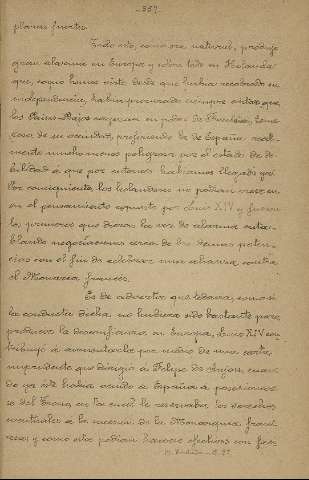 -357-
plazas fuertes.
Todo esto, como era natural, produjo
gran alarma en Europa y sobre todo en Holanda
que, según hemos visto desde que hubo recobrado su
independencia, había procurado siempre evitar que
los Países-Bajos cayeran en poder de Francia, teme-
rosa de su vecindad, prefiriendo la de España real-
mente mucho menos peligrosa por el estado de de-
bilidad a que por entonces habíamos llegado ya.
Por consiguiente, los holandeses no podían creer en
el pensamiento expuesto por Luis XIV y fueron
los primeros que dieron la voz de alarma enta-
blando negociaciones cerca de las demás poten-
cias con el fin de celebrar una alianza contra
el Monarca francés.
Es de advertir que además, como si
la conducta dicha no hubiera sido bastante para
producir la desconfianza en Europa, Luis XIV con-
tribuyó a aumentarla por medio de una carta
imprudente que dirigió a Felipe de Anjou, cuan-
do ya éste había venido a España a posesionar-
se del Trono, en la cual le reservaba los derechos
eventuales a la sucesión de la Monarquía fran-
cesa; y como esto podían hacerlo efectivo con